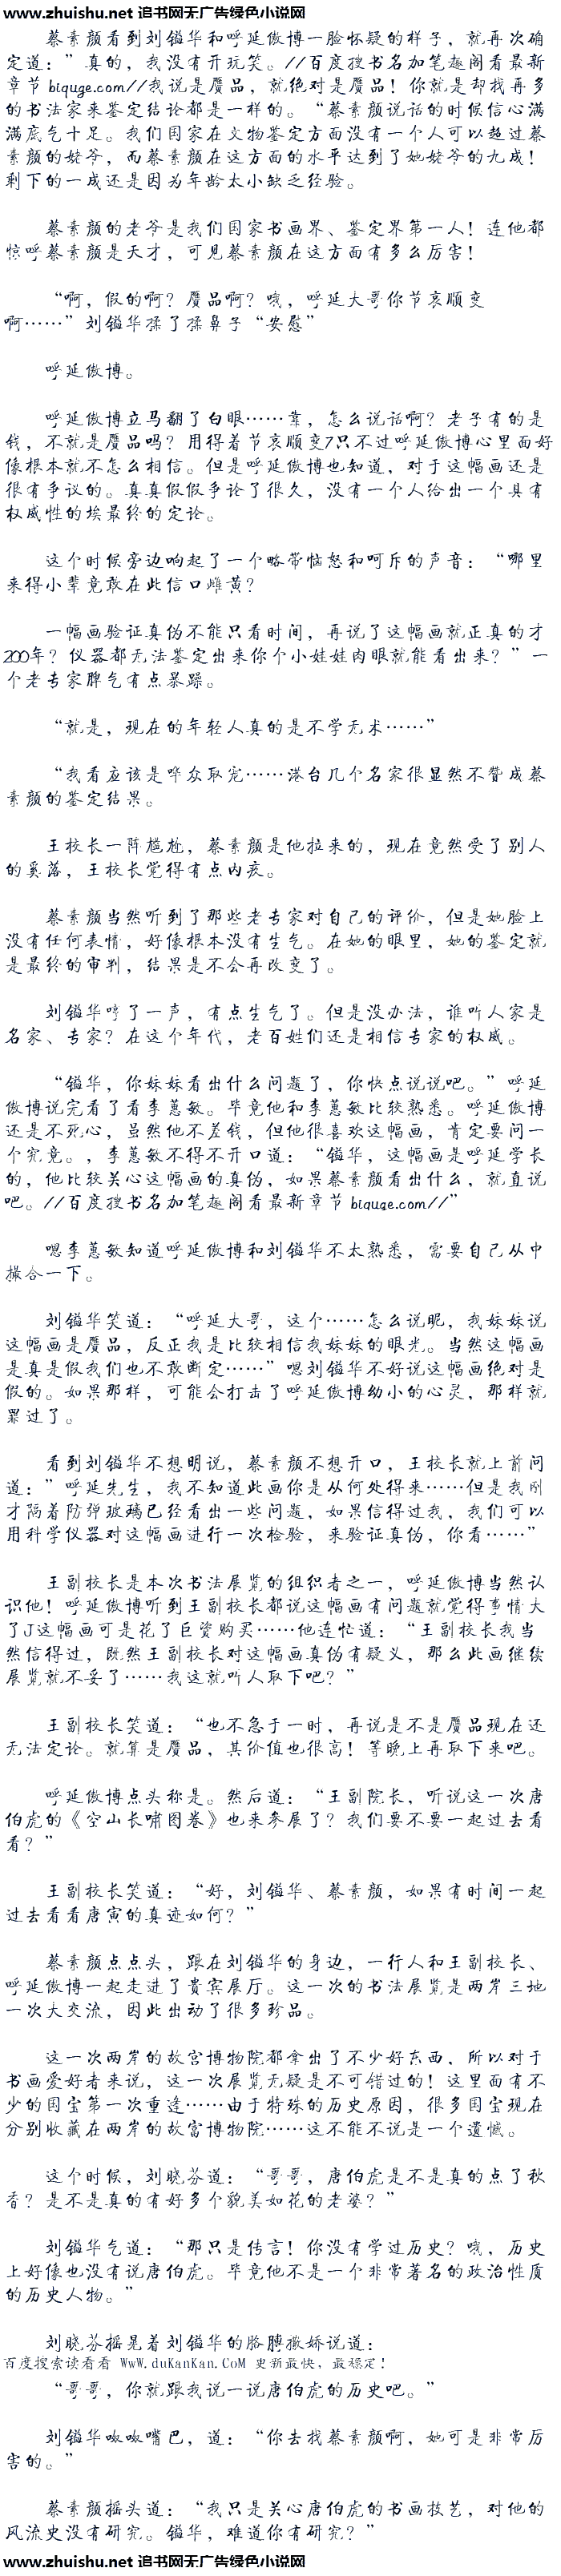 www.zhuishu.net 追书网无广告绿色小说网
蔡素颜看到刘镒华和呼延傲博一脸怀疑的样子，就再次确
定道：”真的，我没有开玩笑。//百度搜书名加笔趣阁看最新
章节biquge.com//我说是赝品，就绝对是赝品！你就是却找再多
的书法家来鉴定结论都是一样的。“蔡素颜说话的时候信心满
满底气十足。我们国家在文物鉴定方面没有一个人可以超过蔡
素颜的姥爷，而蔡素颜在这方面的水平达到了她姥爷的九成！
剩下的一成还是因为年龄太小缺乏经验。
蔡素颜的老爷是我们国家书画界、鉴定界第一人！连他都
惊呼蔡素颜是天才，可见蔡素颜在这方面有多么厉害！
“啊，假的啊？赝品啊？哦，呼延大哥你节哀顺变
啊……”刘镒华揉了揉鼻子“安慰”
呼延傲博。
呼延傲博立马翻了白眼……靠，怎么说话啊？老子有的是
钱，不就是赝品吗？用得着节哀顺变7只不过呼延傲博心里面好
像根本就不怎么相信。但是呼延傲博也知道，对于这幅画还是
很有争议的。真真假假争论了很久，没有一个人给出一个具有
权威性的埃最终的定论。
这个时候旁边响起了一个略带恼怒和呵斥的声音：“哪里
来得小辈竟敢在此信口雌黄？
一幅画验证真伪不能只看时间，再说了这幅画就正真的才
200年？仪器都无法鉴定出来你个小娃娃肉眼就能看出来？”一
个老专家脾气有点暴躁。
“就是，现在的年轻人真的是不学无术……”
“我看应该是哗众取宠……港台几个名家很显然不赞成蔡
素颜的鉴定结果。
王校长一阵尴尬，蔡素颜是他拉来的，现在竟然受了别人
的奚落，王校长觉得有点内疚。
蔡素颜当然听到了那些老专家对自己的评价，但是她脸上
没有任何表情，好像根本没有生气。在她的眼里，她的鉴定就
是最终的审判，结果是不会再改变了。
刘镒华哼了一声，有点生气了。但是没办法，谁听人家是
名家、专家？在这个年代，老百姓们还是相信专家的权威。
“镒华，你妹妹看出什么问题了，你快点说说吧。”呼延
傲博说完看了看李蕙敏。毕竟他和李蕙敏比较熟悉。呼延傲博
还是不死心，虽然他不差钱，但他很喜欢这幅画，肯定要问一
个究竟。，李蕙敏不得不开口道：“镒华，这幅画是呼延学长
的，他比较关心这幅画的真伪，如果蔡素颜看出什么，就直说
吧。//百度搜书名加笔趣阁看最新章节biquge.com//”
嗯李蕙敏知道呼延傲博和刘镒华不太熟悉，需要自己从中
撮合一下。
刘镒华笑道：“呼延大哥，这个……怎么说呢，我妹妹说
这幅画是赝品，反正我是比较相信我妹妹的眼光。当然这幅画
是真是假我们也不敢断定……”嗯刘镒华不好说这幅画绝对是
假的。如果那样，可能会打击了呼延傲博幼小的心灵，那样就
罪过了。
看到刘镒华不想明说，蔡素颜不想开口，王校长就上前问
道：”呼延先生，我不知道此画你是从何处得来……但是我刚
才隔着防弹玻璃已经看出一些问题，如果信得过我，我们可以
用科学仪器对这幅画进行一次检验，来验证真伪，你看……”
王副校长是本次书法展览的组织者之一，呼延傲博当然认
识他！呼延傲博听到王副校长都说这幅画有问题就觉得事情大
了J这幅画可是花了巨资购买……他连忙道：“王副校长我当
然信得过，既然王副校长对这幅画真伪有疑义，那么此画继续
展览就不妥了……我这就听人取下吧？”
王副校长笑道：“也不急于一时，再说是不是赝品现在还
无法定论。就算是赝品，其价值也很高！等晚上再取下来吧。
呼延傲博点头称是。然后道：“王副院长，听说这一次唐
伯虎的《空山长啸图卷》也来参展了？我们要不要一起过去看
看？”
王副校长笑道：“好，刘镒华、蔡素颜，如果有时间一起
过去看看唐寅的真迹如何？”
蔡素颜点点头，跟在刘镒华的身边，一行人和王副校长、
呼延傲博一起走进了贵宾展厅。这一次的书法展览是两岸三地
一次大交流，因此出动了很多珍品。
这一次两岸的故宫博物院都拿出了不少好东西，所以对于
书画爱好者来说，这一次展览无疑是不可错过的！这里面有不
少的国宝第一次重逢……由于特殊的历史原因，很多国宝现在
分别收藏在两岸的故宫博物院……这不能不说是一个遗憾。
这个时候，刘晓芬道：“哥哥，唐伯虎是不是真的点了秋
香？是不是真的有好多个貌美如花的老婆？”
刘镒华气道：“那只是传言！你没有学过历史？哦，历史
上好像也没有说唐伯虎。毕竟他不是一个非常著名的政治性质
的历史人物。”
刘晓芬摇晃着刘镒华的胳膊撒娇说道：
百度搜索读看看 WwW.duKanKan.CoM 更新最快，最稳定！
“哥哥，你就跟我说一说唐伯虎的历史吧。”
刘镒华呶呶嘴巴，道：“你去找蔡素颜啊，她可是非常厉
害的。”
蔡素颜摇头道：“我只是关心唐伯虎的书画技艺，对他的
风流史没有研究。镒华，难道你有研究？”
www.zhuishu.net 追书网无广告绿色小说网